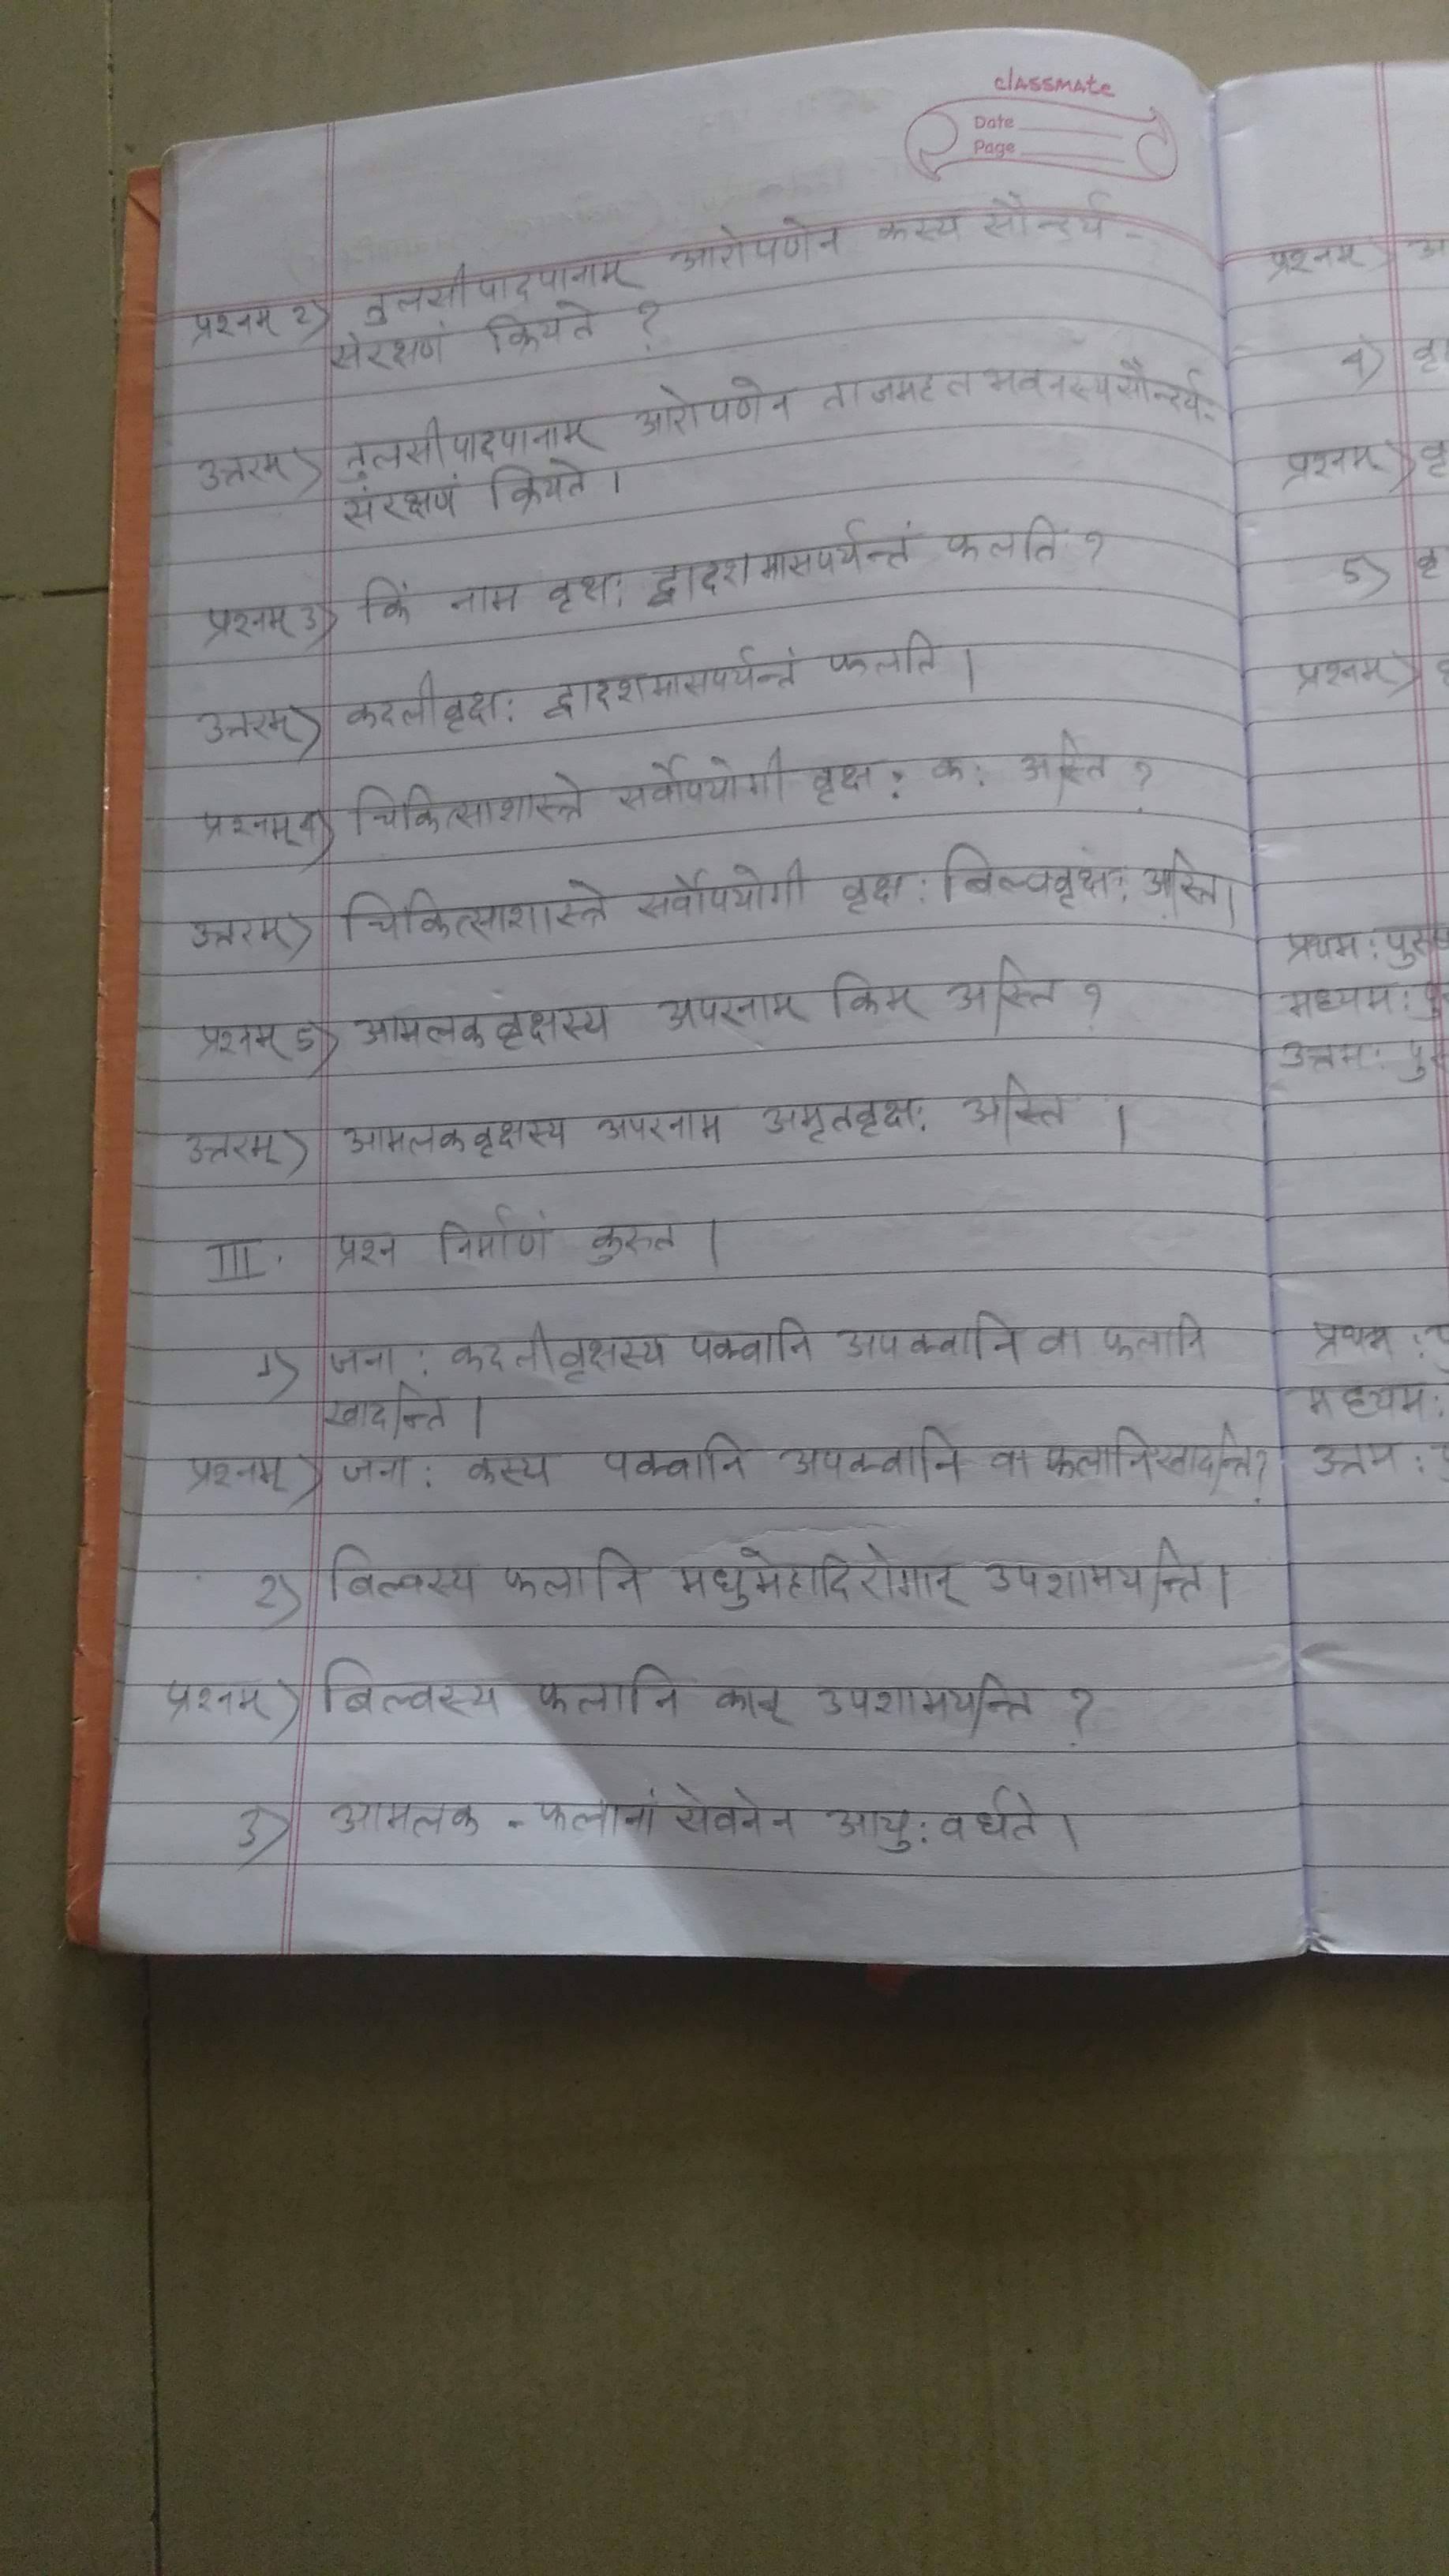 classmate
Date
Page
प्रश्नम् 2) तुलसीपादपानाम् आरोपणेन कस्य सौन्दर्य-
संरक्षणं क्रियते ?
उत्तरम्) तुलसीपादपानाम् आरोपणेन ताजमहल भवनस्य सौन्दर्य-
संरक्षणं क्रियते।
प्रश्नम् 3) किं नाम वृक्षः द्वादशमासपर्यन्तं फलति ?
उत्तरम्) कदलीवृक्षः द्वादशमासपर्यन्तं फलति।
प्रश्नम् 4) चिकित्साशास्त्रे सर्वोपयोगी वृक्षः कः अस्ति ?
उत्तरम्) चिकित्साशास्त्रे सर्वोपयोगी वृक्षः बिल्ववृक्षः अस्ति।
प्रश्नम् 5) आमलकवृक्षस्य अपरनाम किम् अस्ति ?
उत्तरम्) आमलकवृक्षस्य अपरनाम अमृतवृक्षः अस्ति ।
III. प्रश्न निर्माणं कुरुत।
1) जनाः कदलीवृक्षस्य पक्वानि अपक्वानि वा फलानि
खादन्ति।
प्रश्नम्) जनाः कस्य पक्वानि अपक्वानि वा फलानि खादन्ति?
2) बिल्वस्य फलानि मधुमेहादिरोगान् उपशामयन्ति।
प्रश्नम्) बिल्वस्य फलानि कान् उपशामयन्ति ?
3) आमलक - फलानां सेवनेन आयुः वर्धते।
प्रश्नम्)
4)
प्रश्नम्)
5)
प्रश्नम्)
प्रथमः
मध्यमः
उत्तमः
प्रथमः
मध्यमः
उत्तमः